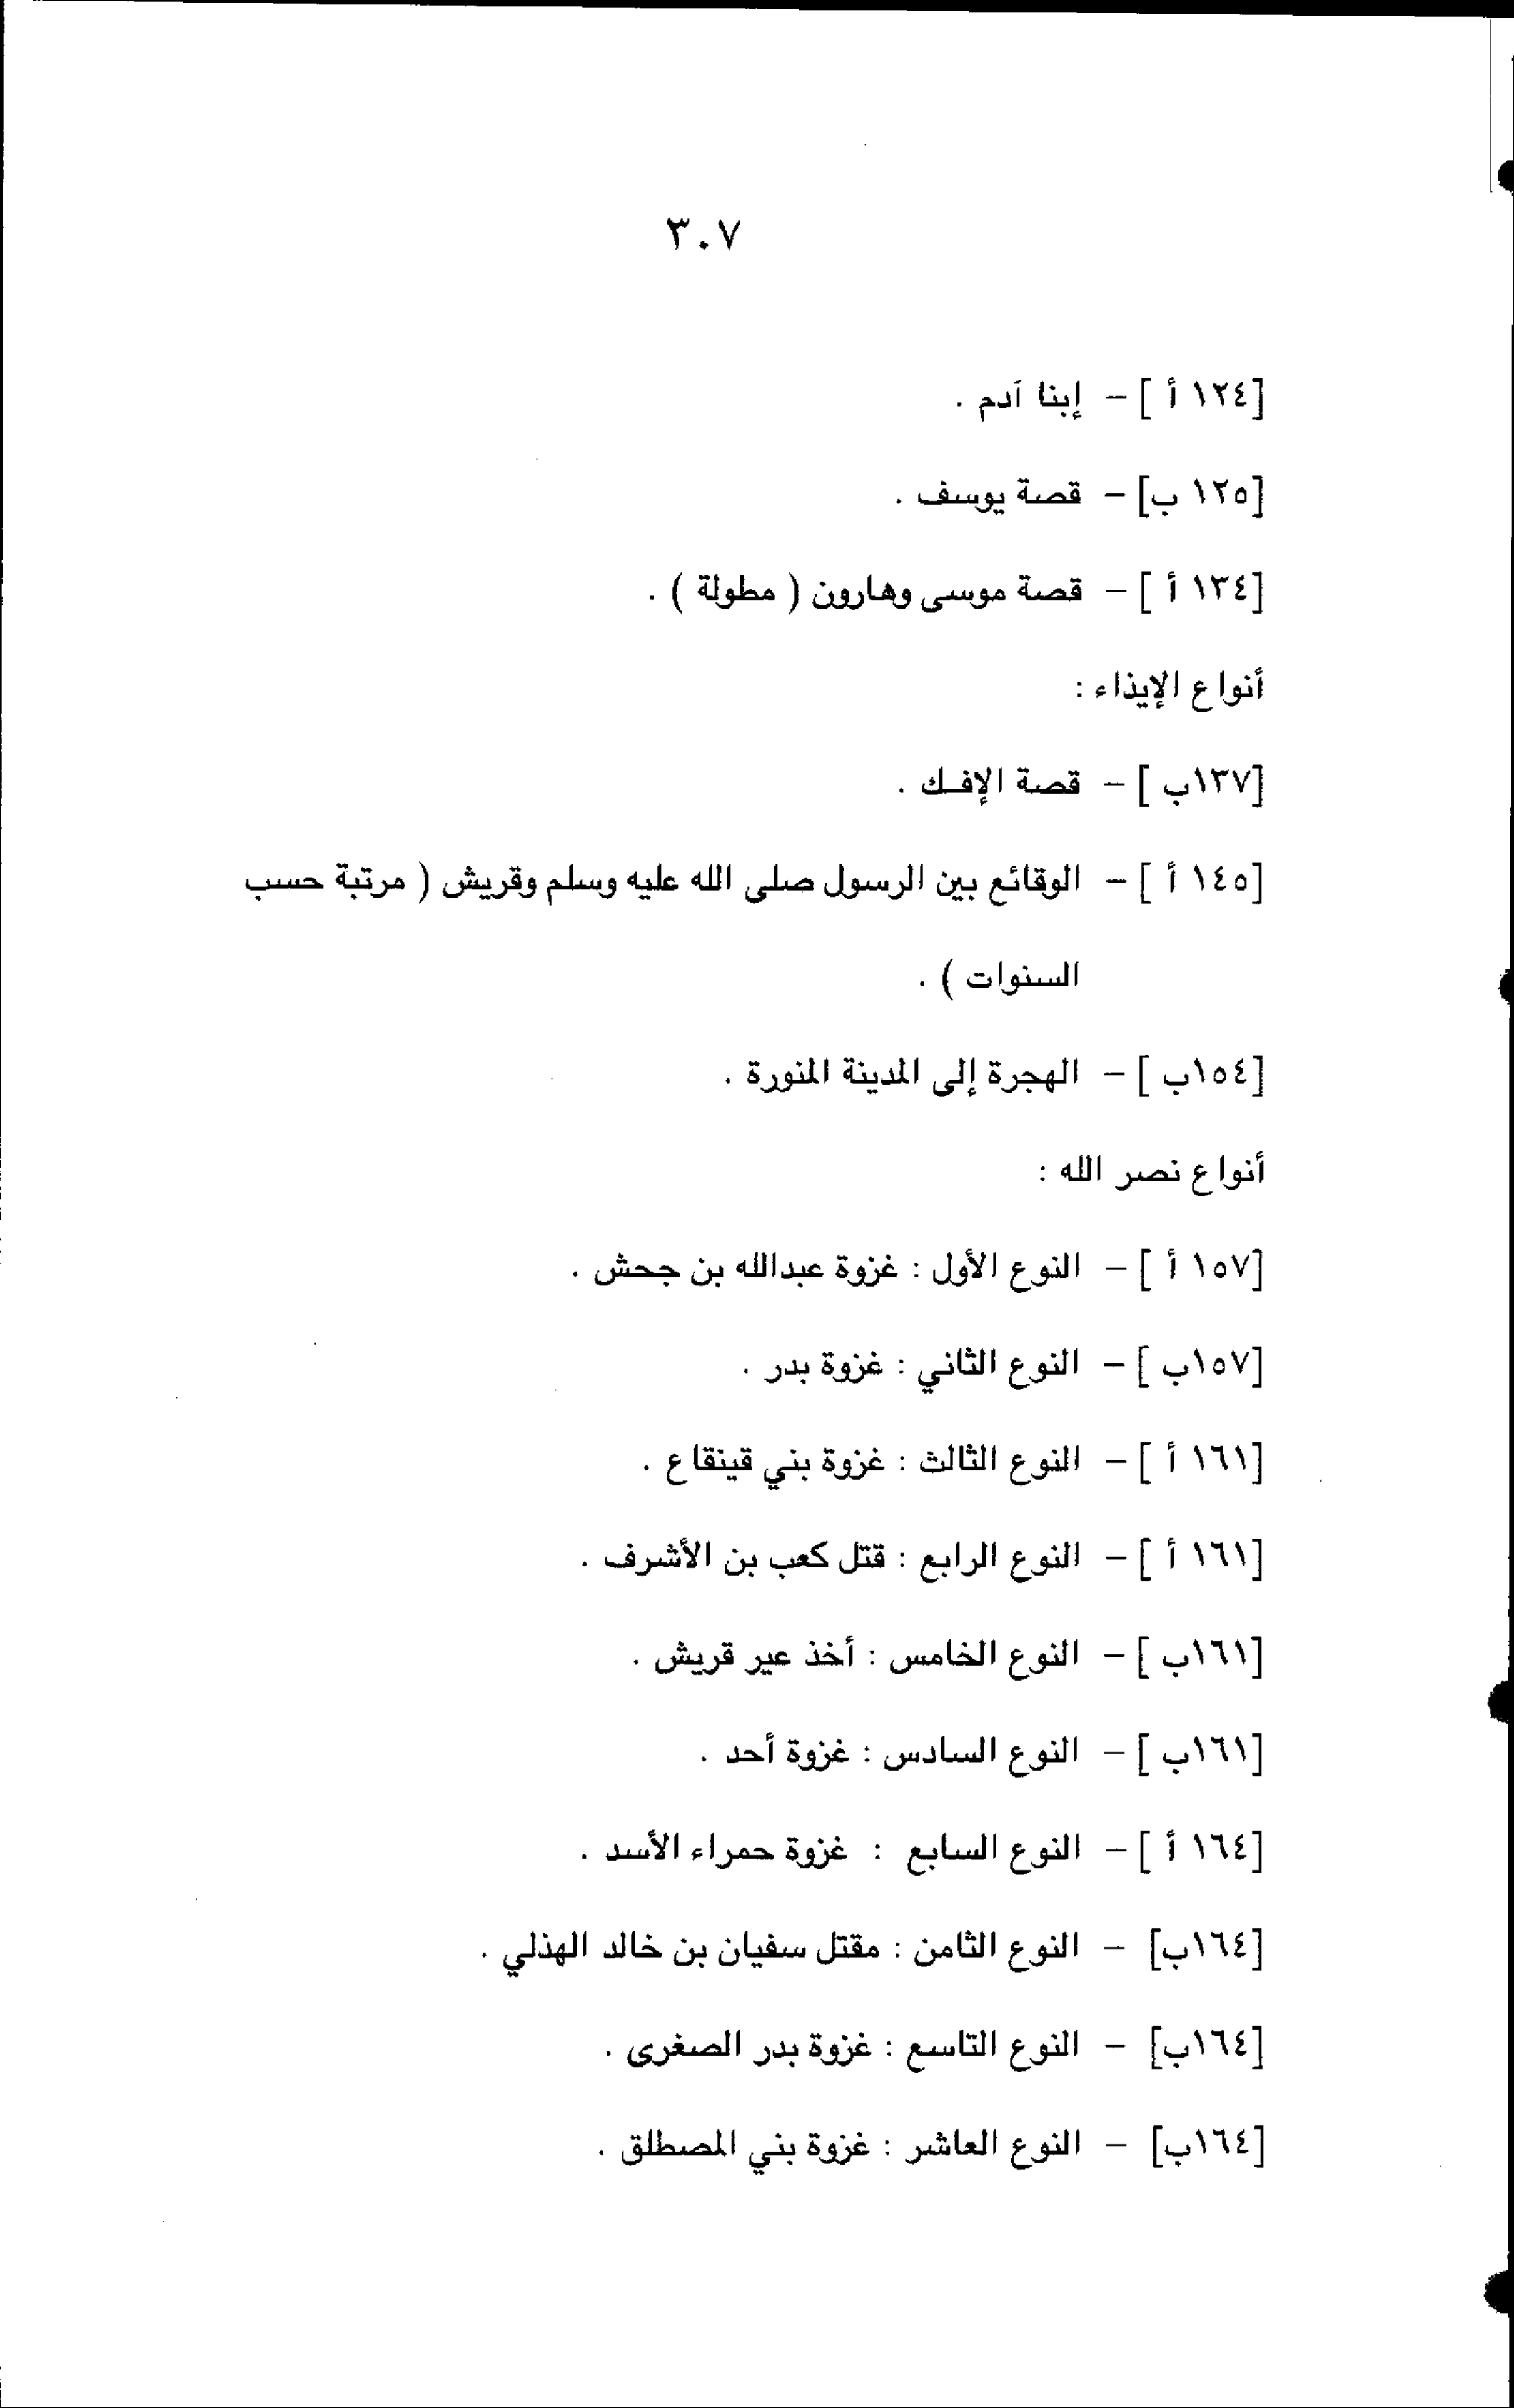 ٣٠٧
[١٢٤ أ ] – إبنا آدم .
[١٢٥ ب] – قصة يوسف .
[١٣٤ أ ] – قصة موسى وهارون ( مطولة ) .
أنواع الإيذاء :
[١٣٧ب ] – قصة الإفـك .
[١٤٥ أ ] – الوقائع بين الرسول صلى الله عليه وسلم وقريش ( مرتبة حسب
السنوات ) .
[١٥٤ب ] – الهجرة إلى المدينة المنورة .
أنواع نصر الله :
[١٥٧ أ ] – النوع الأول : غزوة عبدالله بن جحش .
[١٥٧ب ] – النوع الثاني : غزوة بدر .
[١٦١ أ ] – النوع الثالث : غزوة بني قينقاع .
[١٦١ أ ] – النوع الرابع : قتل كعب بن الأشرف .
[١٦١ب ] – النوع الخامس : أخذ عير قريش .
[١٦١ب ] – النوع السادس : غزوة أحد .
[١٦٤ أ ] – النوع السابع : غزوة حمراء الأسد .
[١٦٤ب] – النوع الثامن : مقتل سفيان بن خالد الهذلي .
[١٦٤ب] – النوع التاسع : غزوة بدر الصغرى .
[١٦٤ب] – النوع العاشر : غزوة بني المصطلق .